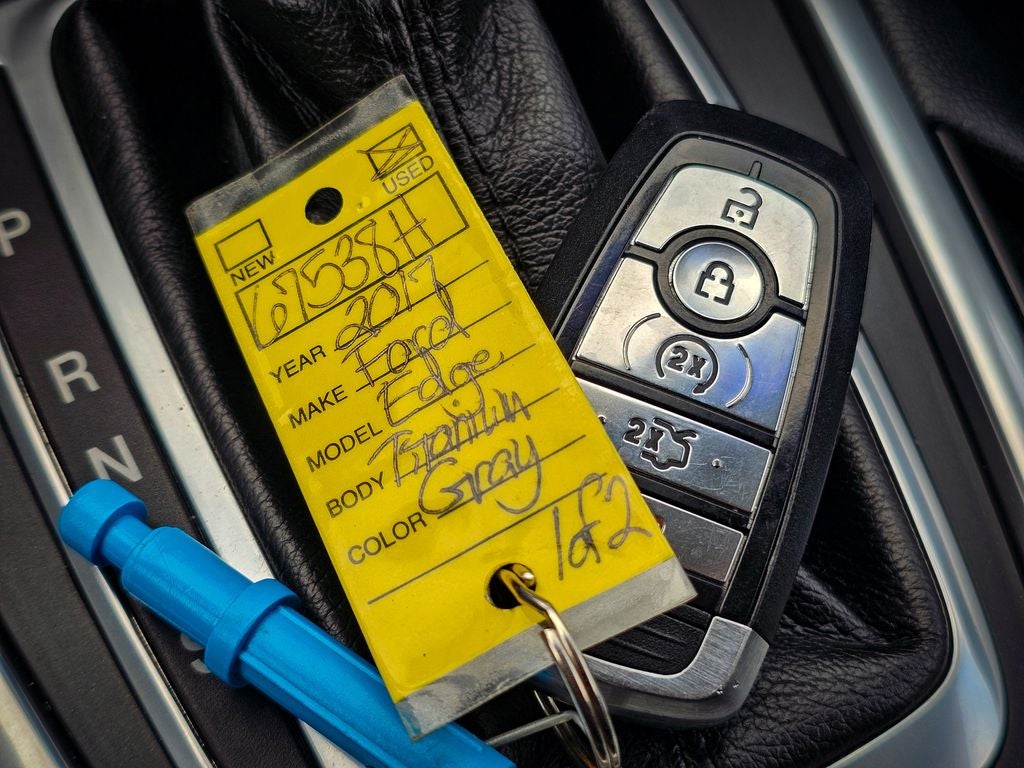 P
R
N
S
NEW
USED
67538H
YEAR 2017
MAKE Ford
MODEL Edge
BODY Titanium
COLOR Gray
1of2
2X
2X